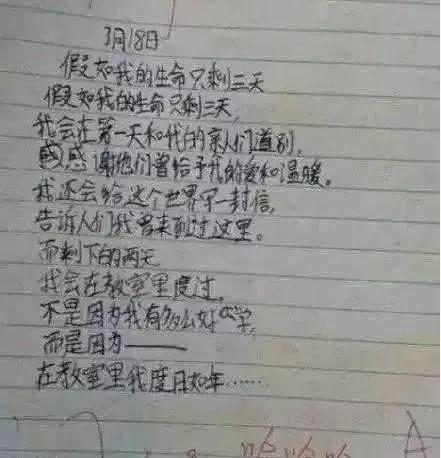 3月18日
假如我的生命只剩三天
假如我的生命只剩三天,
我会在第一天和我的亲人们道别,
感感谢他们曾给予我的爱和温暖。
我还会给这个世界写一封信,
告诉人们我曾来到过这里。
而剩下的两天
我会在教室里度过,
不是因为我有多么好学,
而是因为——
在教室里我度日如年……
A